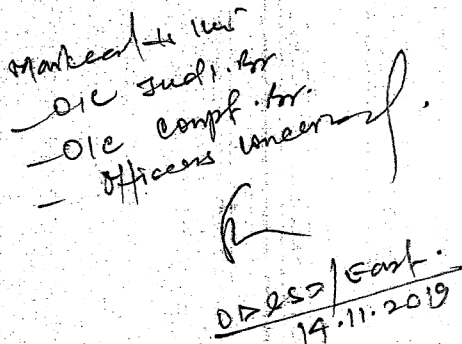 Marked to
- OIC Judl. Br
- OIC Compt. Br.
- Officers concerned.
East.
14.11.2019